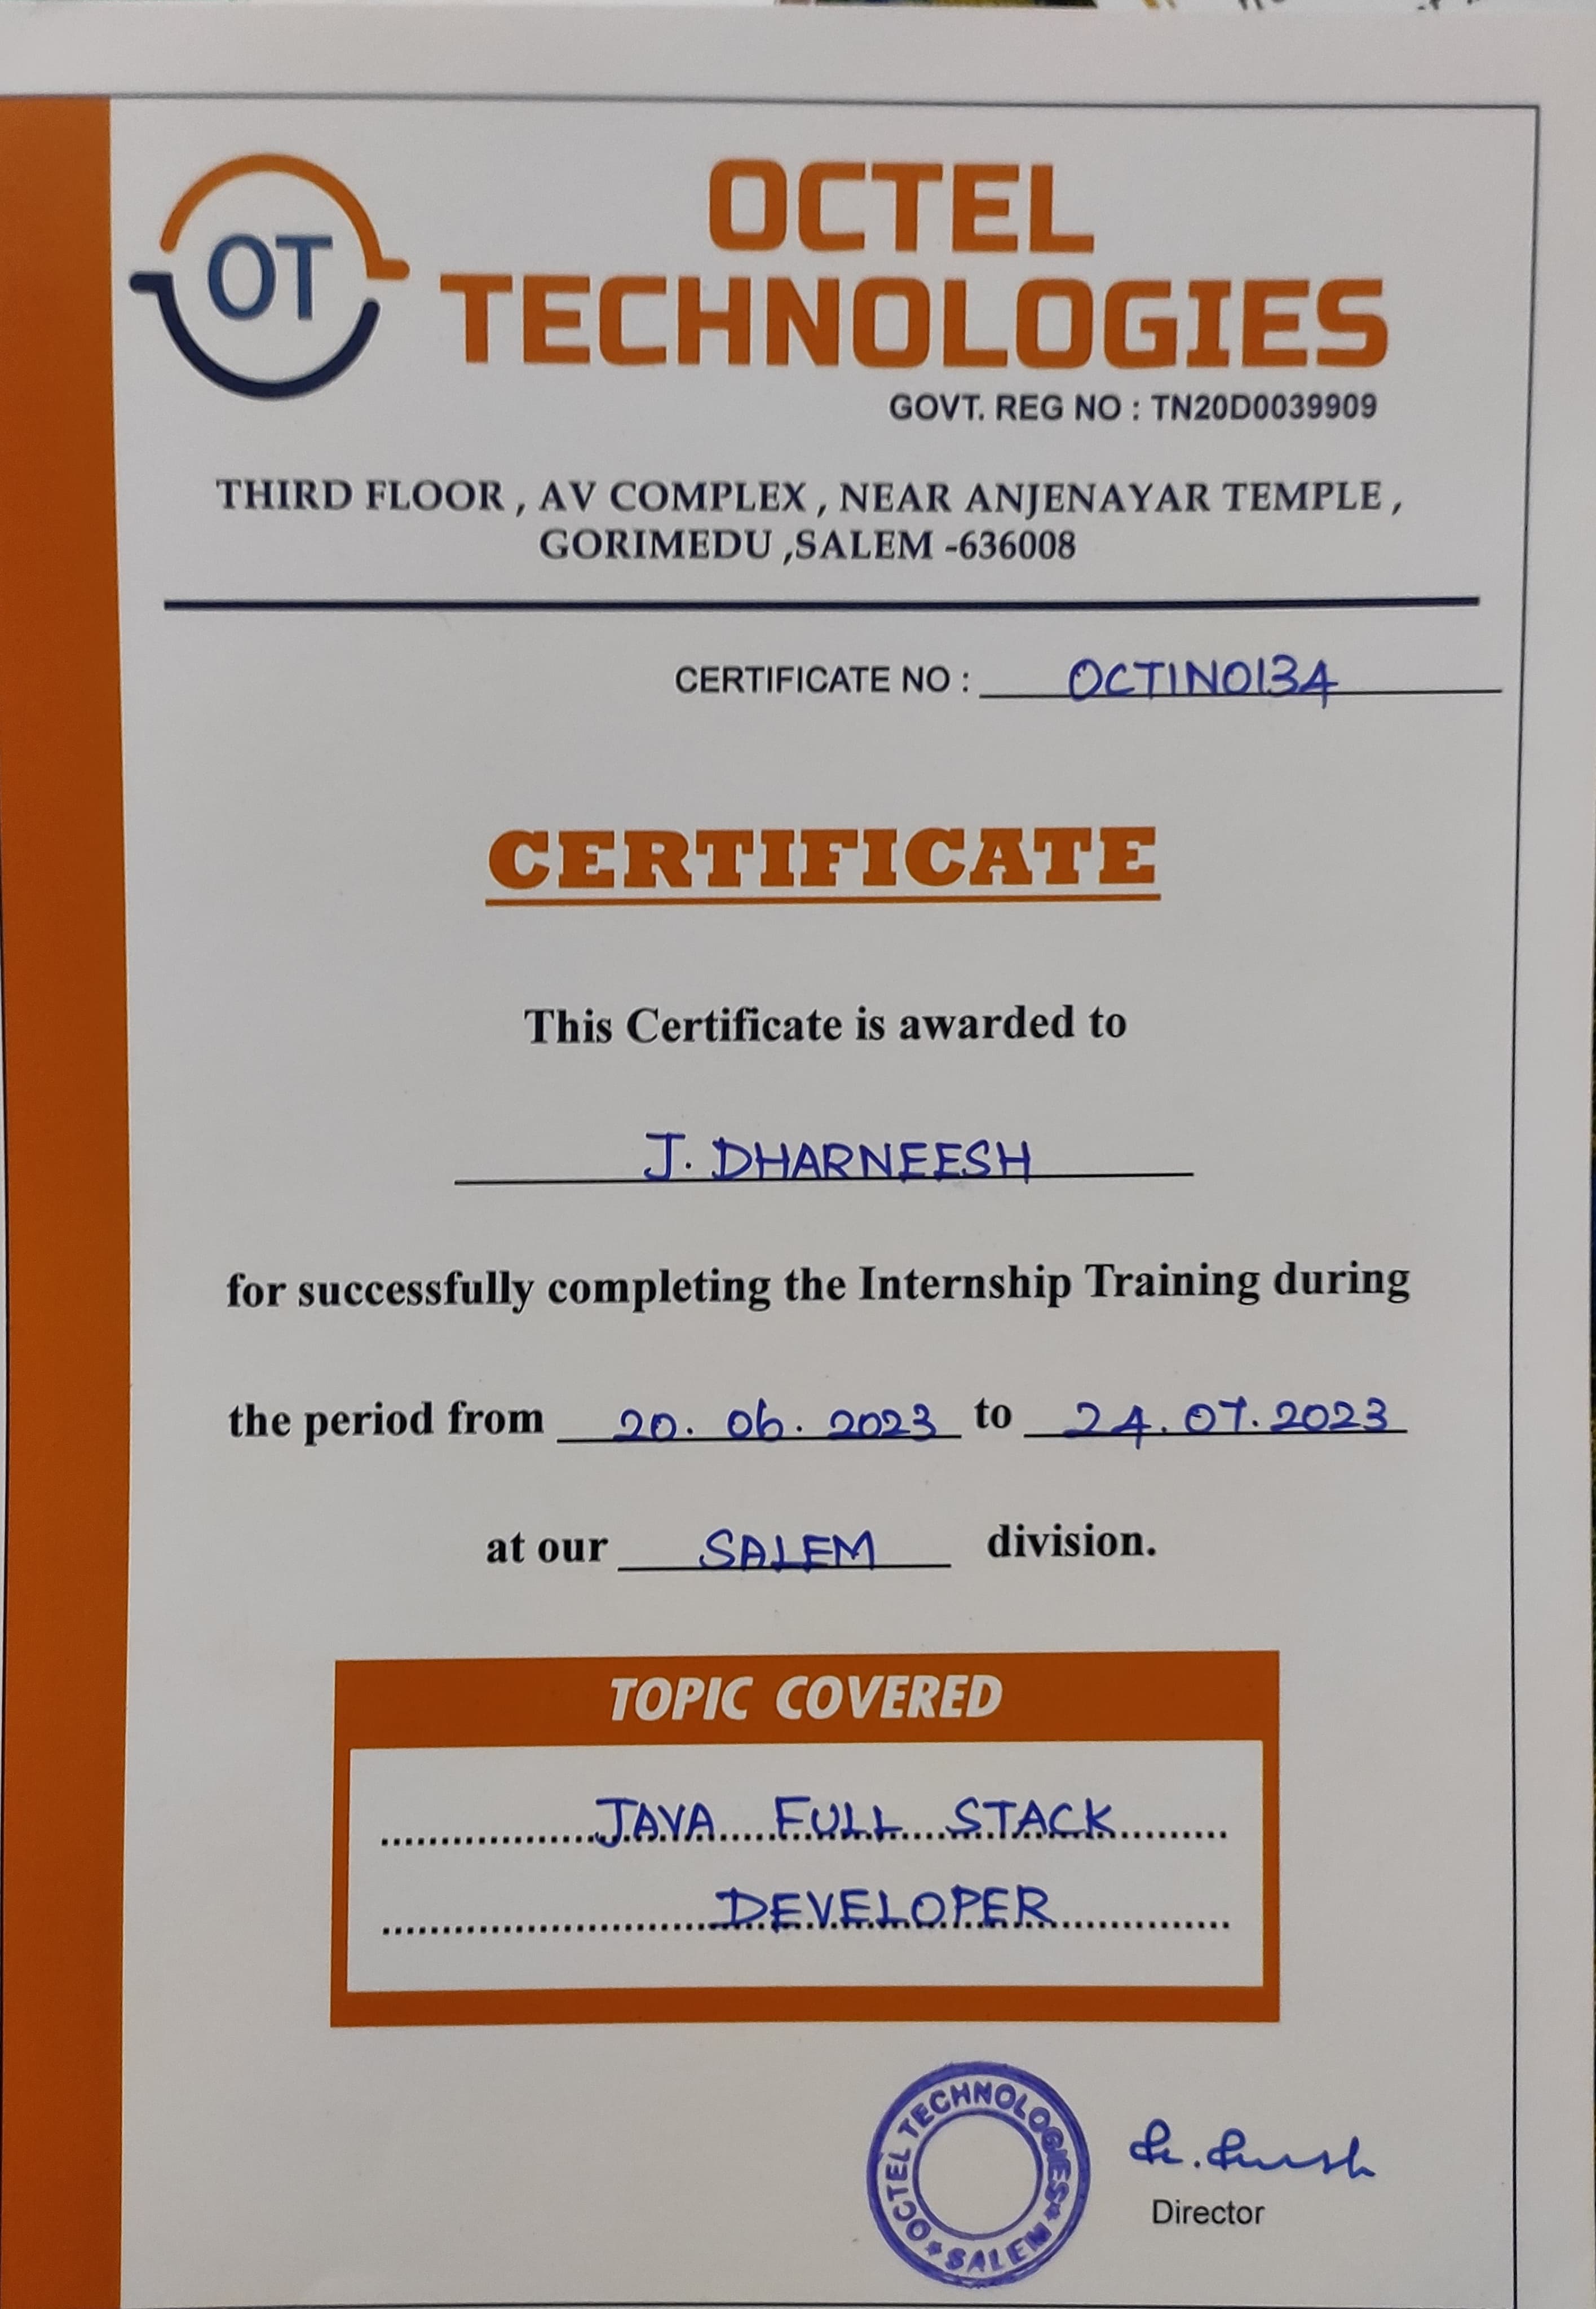 OT
OCTEL
TECHNOLOGIES
GOVT. REG NO : TN20D0039909
THIRD FLOOR , AV COMPLEX , NEAR ANJENAYAR TEMPLE ,
GORIMEDU ,SALEM -636008
CERTIFICATE NO : OCTIN0134
CERTIFICATE
This Certificate is awarded to
J. DHARNEESH
for successfully completing the Internship Training during
the period from 20. 06. 2023 to 24.07.2023
at our SALEM division.
TOPIC COVERED
JAVA FULL STACK
DEVELOPER
OCTEL TECHNOLOGIES
SALEM
Director